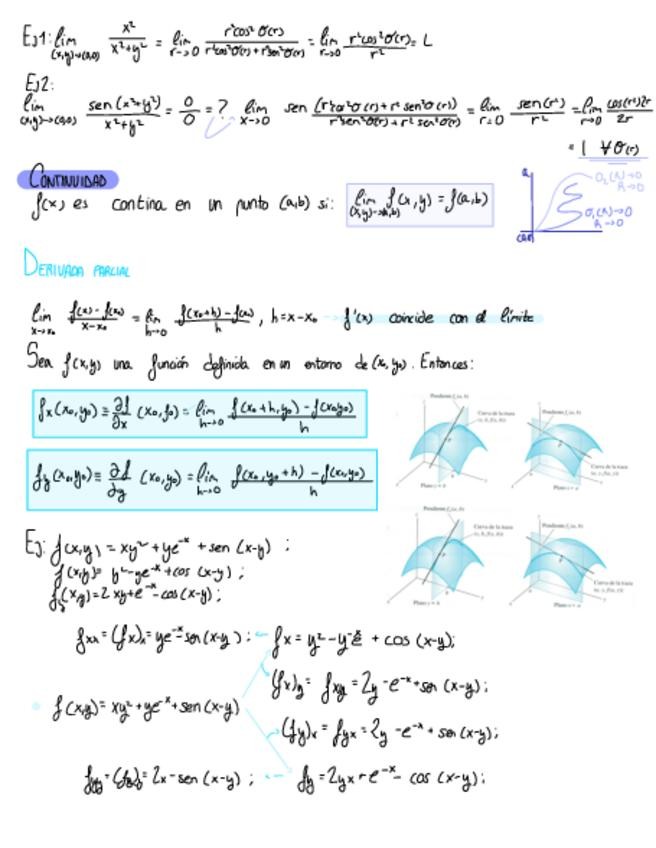 Ej1: lim (x,y)→(0,0) x²/(x²+y²) = lim r→0 r²cos²σ(r)/(r²cos²σ(r)+r²sen²σ(r)) = lim r→0 r²cos²σ(r)/r² = L
Ej2:
lim (x,y)→(0,0) sen(x²+y²)/(x²+y²) = 0/0 = ? lim x→0 sen (r²cos²σ(r)+r²sen²σ(r))/(r²sen²σ(r)+r²sen²σ(r)) = lim r=0 sen(r²)/r² = lim r→0 cos(r²)2r/2r
= 1 ∀σ(r)
CONTINUIDAD
f(x) es contina en un punto (a,b) si: lim (x,y)→(a,b) f(x,y) = f(a,b)
σ₂(r)→0
r→0
σ₁(r)→0
r→0
DERIVADA PARCIAL
lim x→x₀ f(x)-f(x₀)/x-x₀ = lim h→0 f(x₀+h)-f(x₀)/h , h=x-x₀ → f'(x) coincide con el límite
Sea f(x,y) una función definida en un entorno de (x₀,y₀). Entonces:
fx(x₀,y₀) ≡ ∂f/∂x (x₀,y₀) = lim h→0 f(x₀+h,y₀)-f(x₀,y₀)/h
fy(x₀,y₀) ≡ ∂f/∂y (x₀,y₀) = lim h→0 f(x₀,y₀+h)-f(x₀,y₀)/h
Pendiente
Curva de la traza
Plano y = b
Pendiente
Curva de la traza
Plano x = a
Pendiente
Curva de la traza
Plano y = b
Pendiente
Curva de la traza
Plano x = a
Ej: f(x,y) = xy² + ye⁻ˣ + sen (x-y) ;
f(x,y) = y²-ye⁻ˣ+cos (x-y) ;
fy(x,y)=2xy+e⁻ˣ-cos(x-y) ;
fxx = (fx)x = ye⁻ˣ-sen(x-y) ; ← fx = y²-ye⁻ˣ + cos (x-y);
(fx)y = fxy = 2y -e⁻ˣ+sen (x-y) ;
f(x,y) = xy²+ye⁻ˣ+sen(x-y)
(fy)x = fyx = 2y -e⁻ˣ + sen(x-y);
fyy = (fy)y = 2x-sen(x-y) ; ← fy = 2yx+e⁻ˣ- cos (x-y) ;